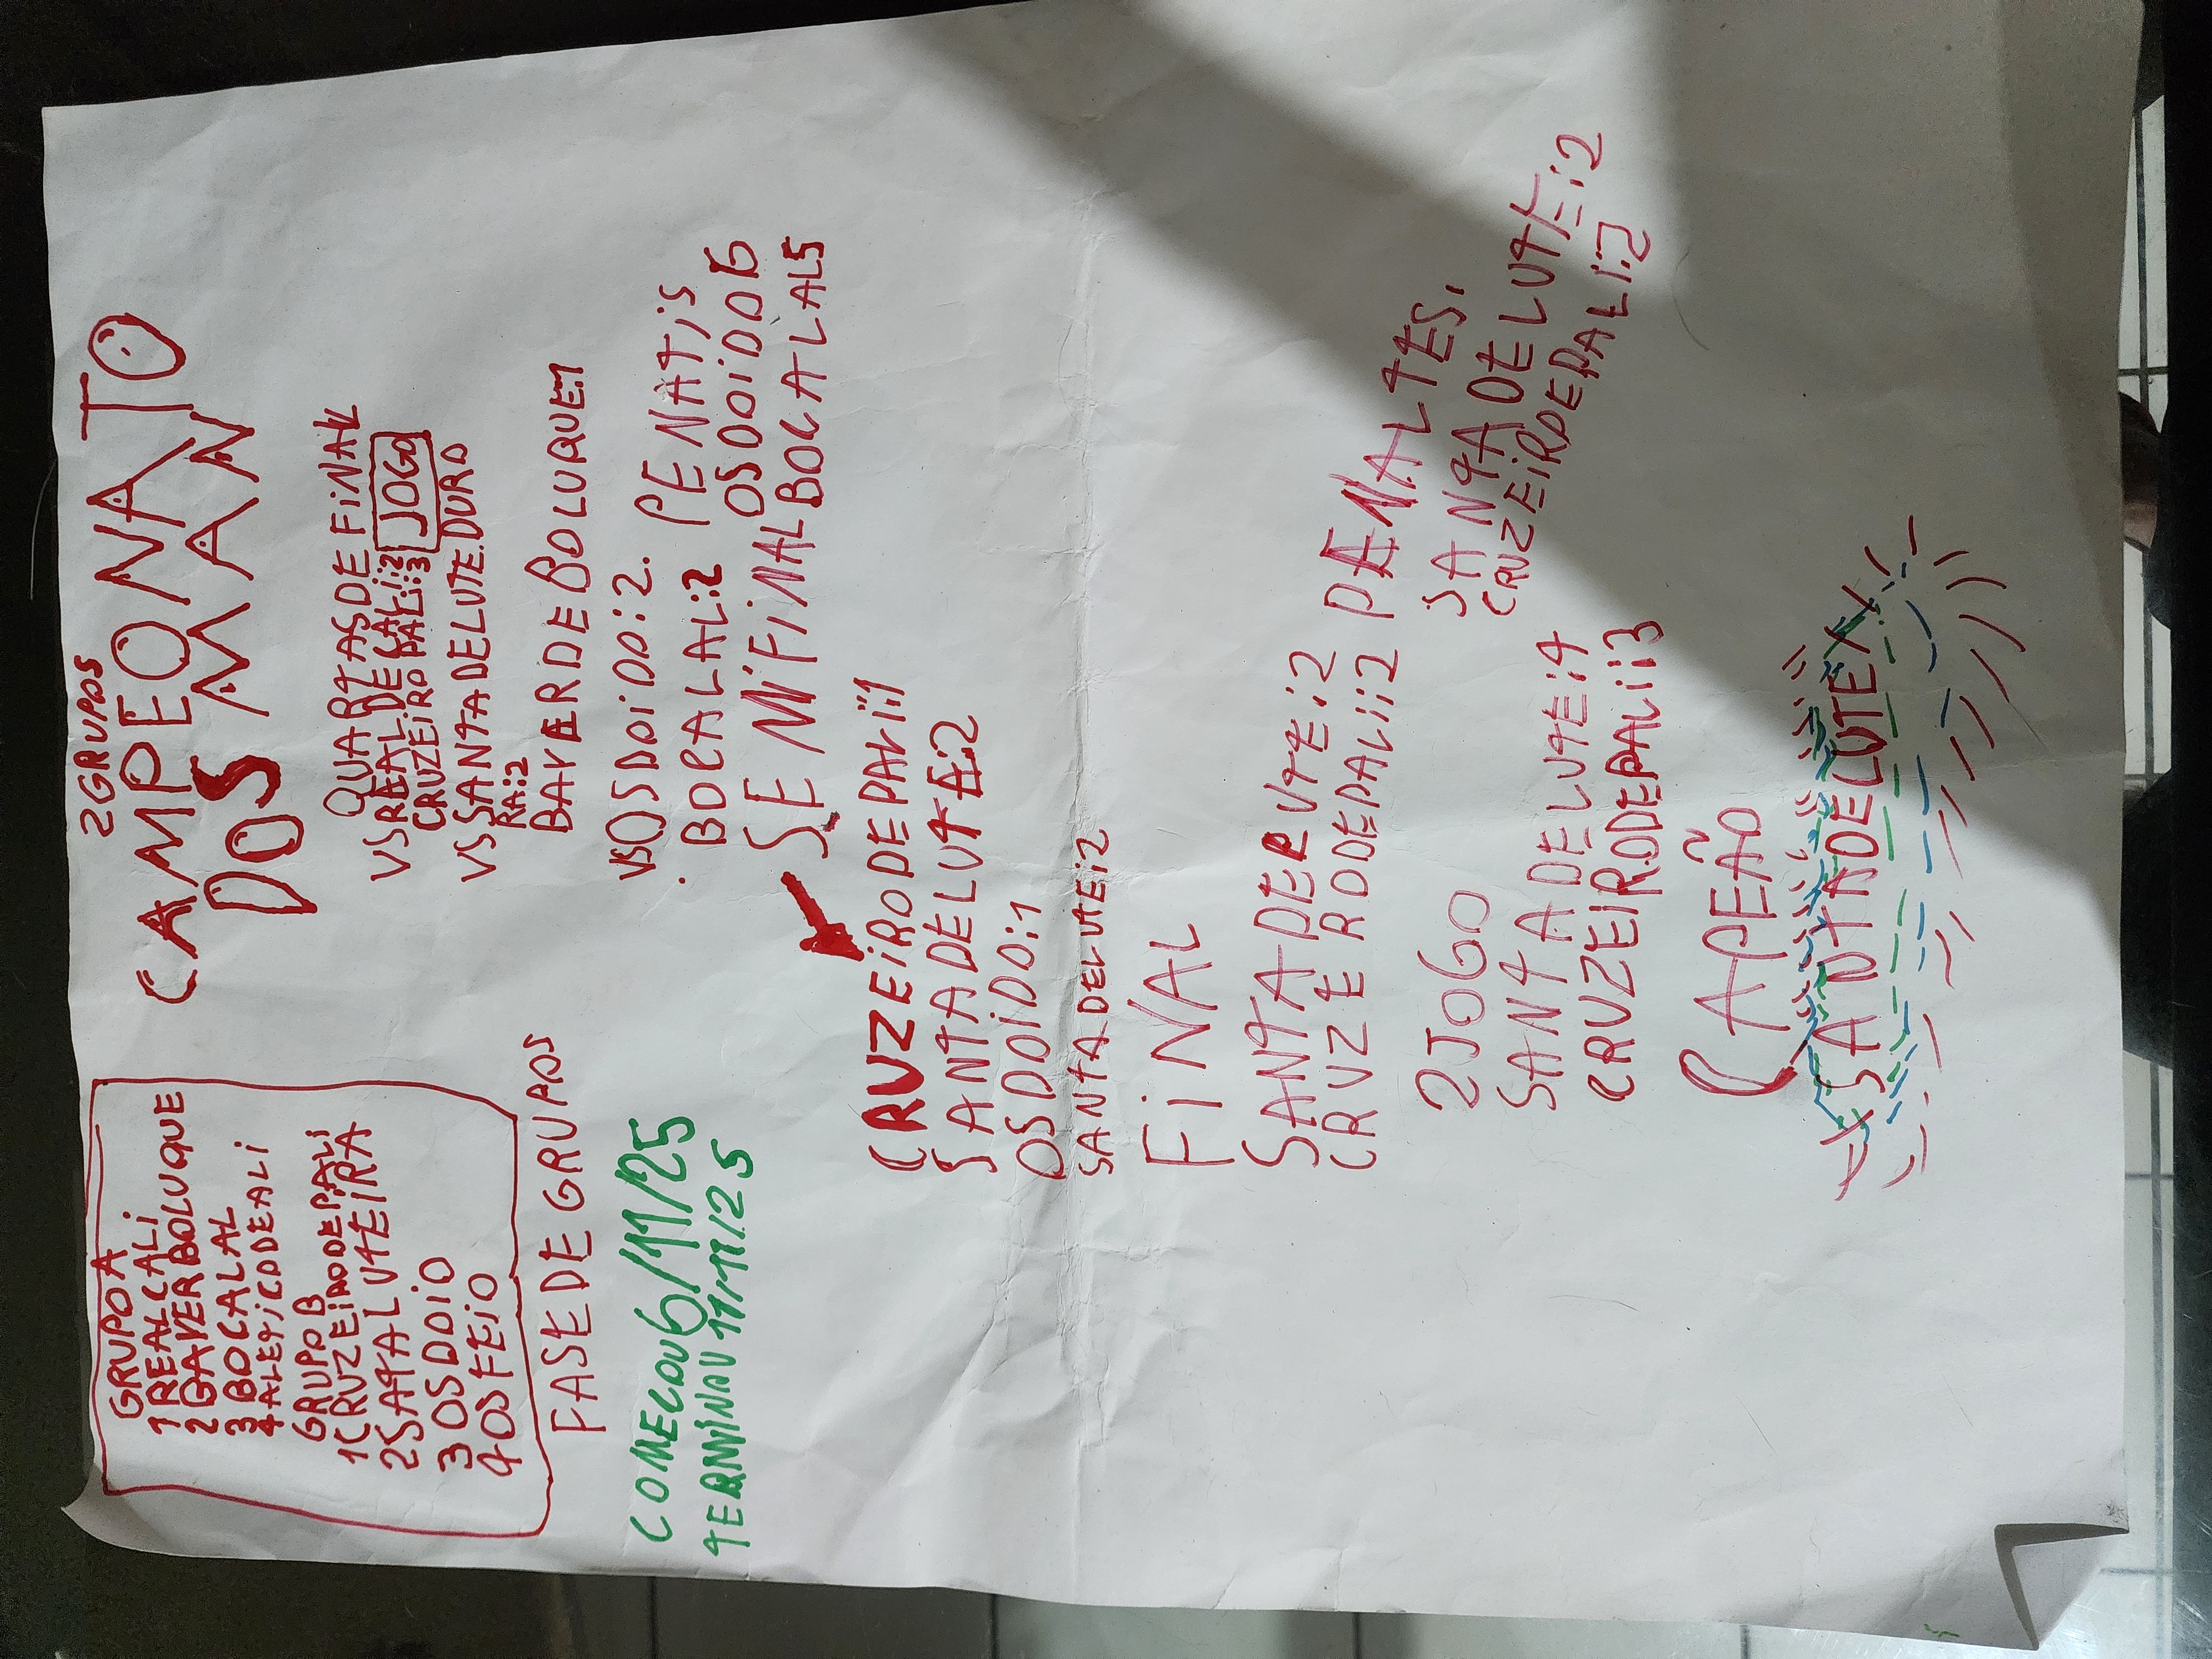 2GRUPOS
CAMPEONATO
DOS MANN
GRUPO A
1REALCALI
2GAVERBOLUQUE
3BOCALAL
4ALETiCODEALI
GRUPO B
1CRUZEiRODEPALi
2SATALUTEiRA
3OSDOiO
4OSFEiO
FASE DE GRUPOS
COMECOU6/11/25
TERMiNOU 11/11/25
QUARTAS DE FiNAL
VSREAL DE CALi:2
CRUZEiRO PALi:3 JOGO
VSSANTADELUTE.DURO
RA:2
BAVERDEBOLUQUE:1
VSOSDOiDO:2. PENATiS
.BOCALAL:2 OSDOiDO6
SEMiFiNAL BOCALAL5
CRUZEiRODEPALi:1
SANTADELUTE:2
OSDOiDO:1
SANTADELUTE:2
FiNAL
SANTADERUTE:2
CRUZERODEPALi:2 PENALTES.
SANTADELUTE:2
CRUZEiRDEPALI:2
2JOGO
SANTADELUTE:4
CRUZEiRODEPALi:3
CAPEÃO
SANTADELUTE